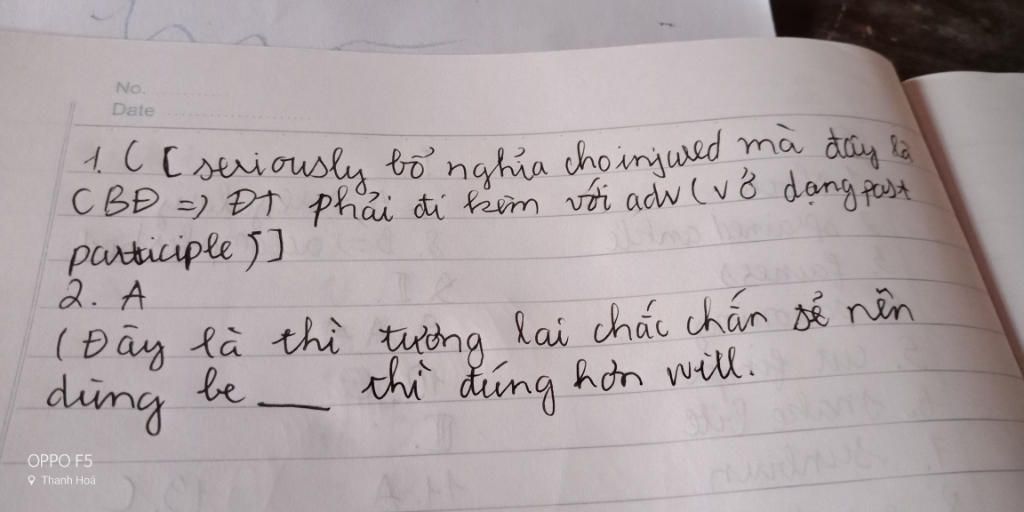 No.
Date
1. C [ seriously bổ nghĩa cho injured mà đây là
CBĐ => ĐT phải đi kèm với adv ( v ở dạng past
participle )]
2. A
( Đây là thì tương lai chắc chắn sẽ nên
dùng be ___ thì đúng hơn will.
OPPO F5
Thanh Hoá